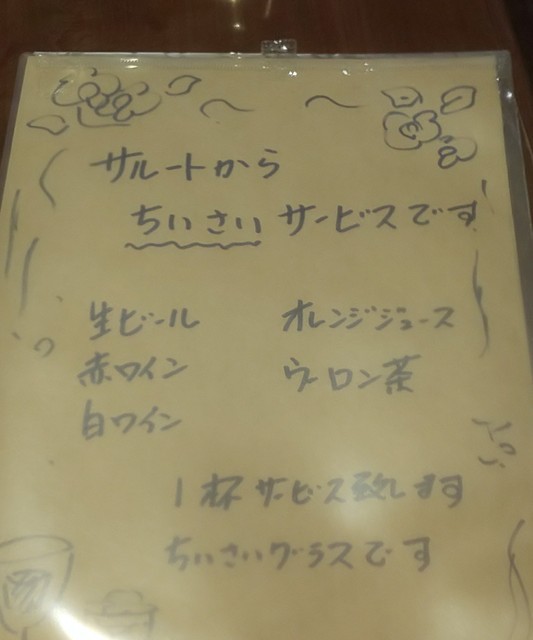 サルートから
ちいさいサービスです
生ビール オレンジジュース
赤ワイン ウーロン茶
白ワイン
1杯サービス致します
ちいさいグラスです